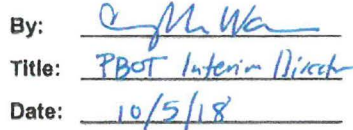 By:
Title: PBOT Interim Director
Date: 10/5/18